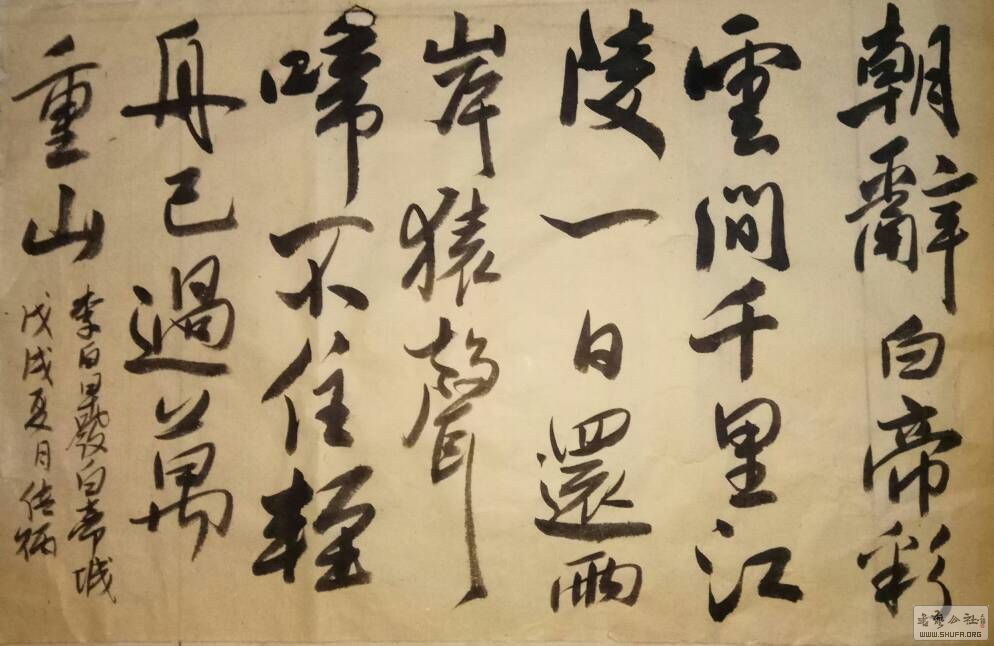 朝辭白帝彩
雲間千里江
陵一日還兩
岸猿聲
啼不住輕
舟已過萬
重山
李白早發白帝城
戊戌夏月佐炳
WWW.SHUFA.ORG